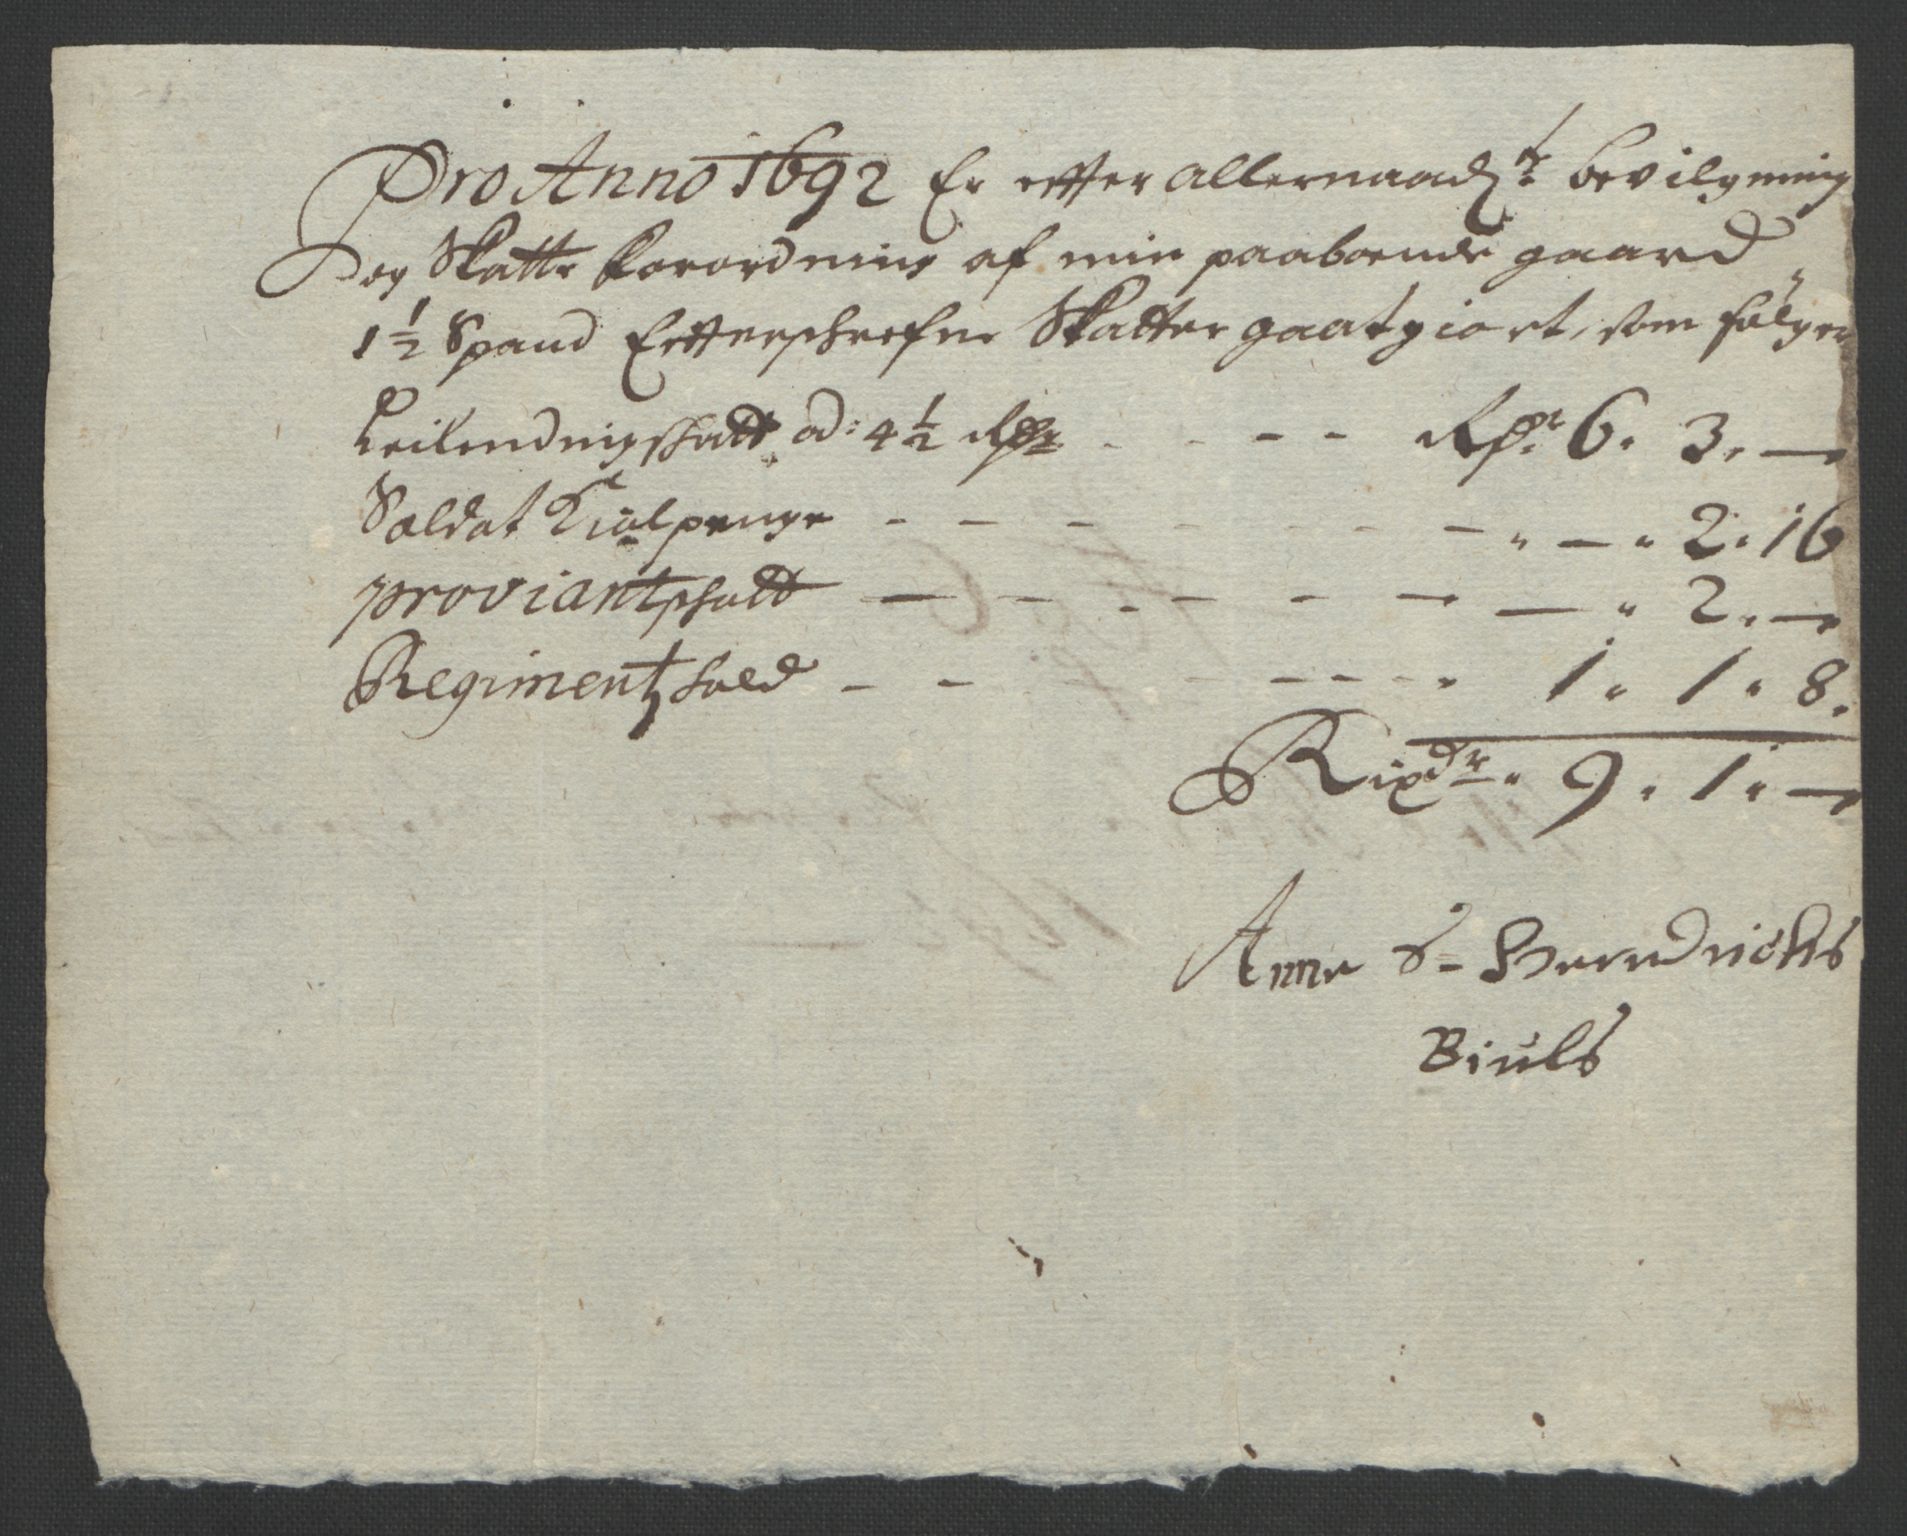 Pro Anno 1692 Er effter allernaadst bevilgning
og Skatte forordning af min paaboende gaard
1½ Spand Effterschrefne Skatter gaatgiort, som følger
Leilendingschatt ad: 4½ Rdr - - - - Rdr 6. 3. —
Soldat Kiolpenge - - - - - - - " — " 2. 16
proviantschatt — - - - - - — " 2. —
Regimentzhold - - - - - - - " 1 " 1 " 8.
Rixdr " 9 . 1 " —
Anne Hendrichs
Biuls